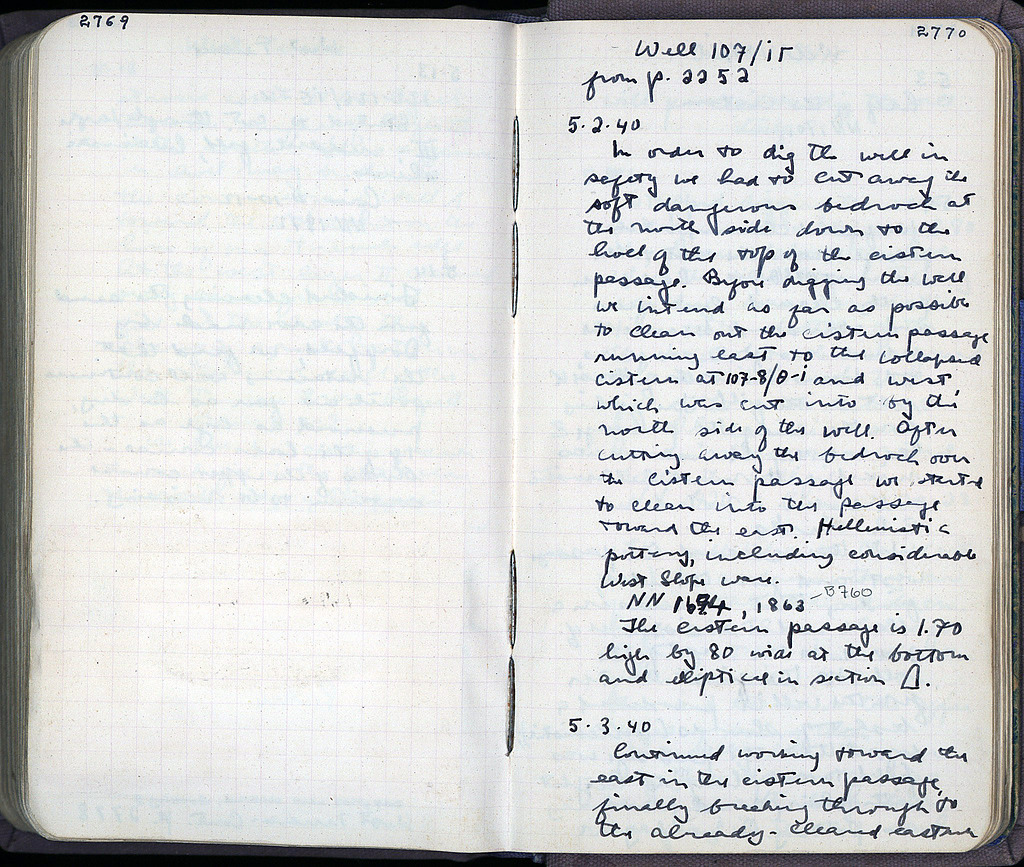 2769
2770
Well 107/ΙΓ
from p. 2252
5.2.40
In order to dig the well in
safety we had to cut away the
soft dangerous bedrock at
the north side down to the
level of the top of the cistern
passage. Before digging the well
we intend as far as possible
to clean out the cistern passage
running east to the collapsed
cistern at 107-8/Θ-Ι and west,
which was cut into by the
north side of the well. After
cutting away the bedrock over
the cistern passage we started
to clean into the passage
toward the east. Hellenistic
pottery, including considerable
West Slope ware.
NN 1694, 1863 - B760
The cistern passage is 1.70
high by 80 wide at the bottom
and eliptical in section
5.3.40
Continued working toward the
east in the cistern passage,
finally breaking through to
the already-cleared eastern